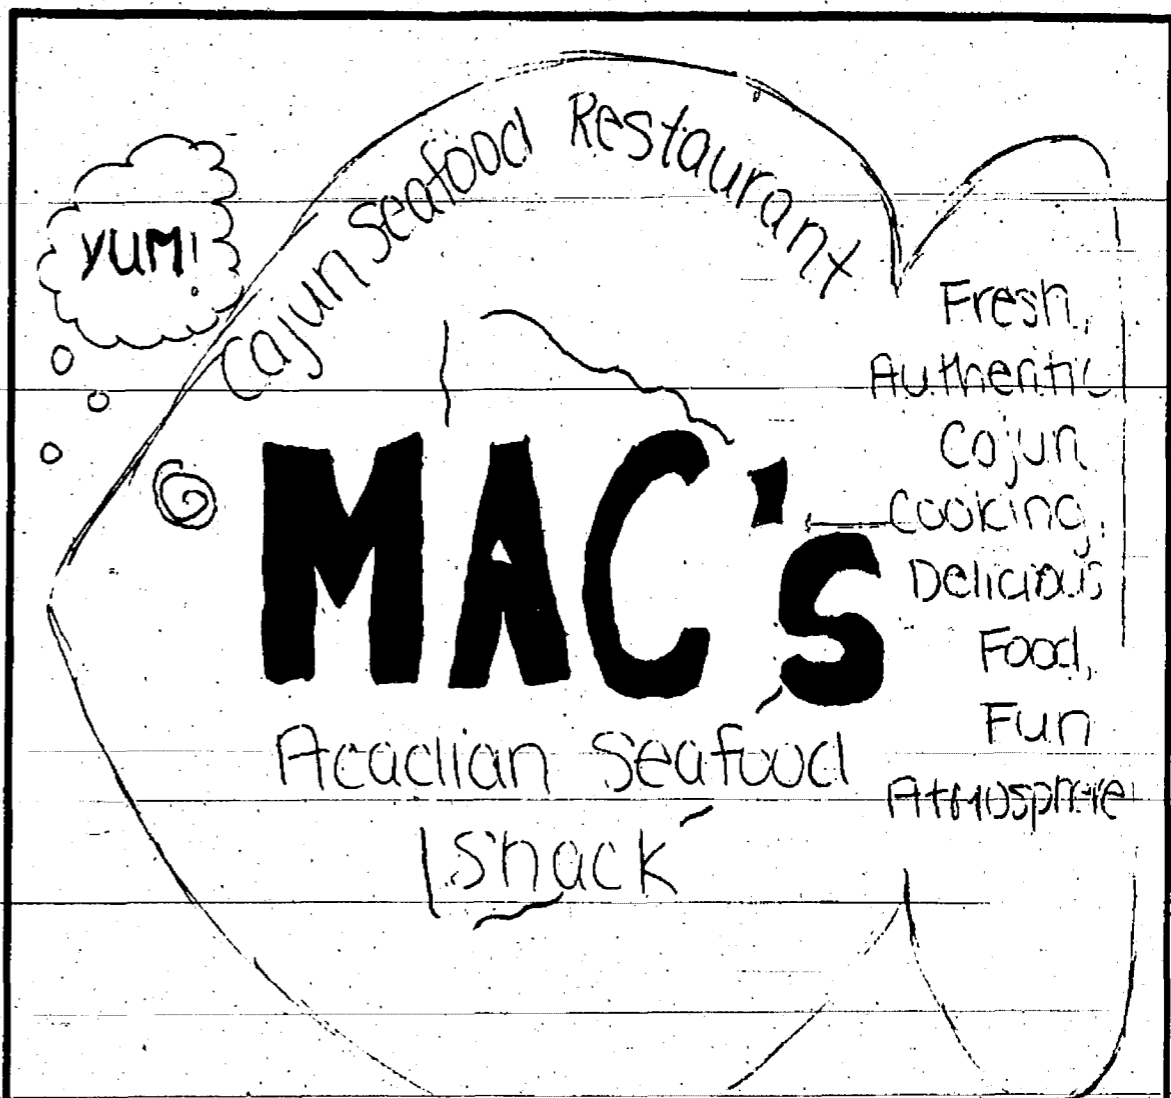 Cajun Seafood Restaurant
YUM!
MAC's
Acadian Seafood
Shack
Fresh,
Authentic
Cajun
Cooking,
Delicious
Food,
Fun
Atmosphere